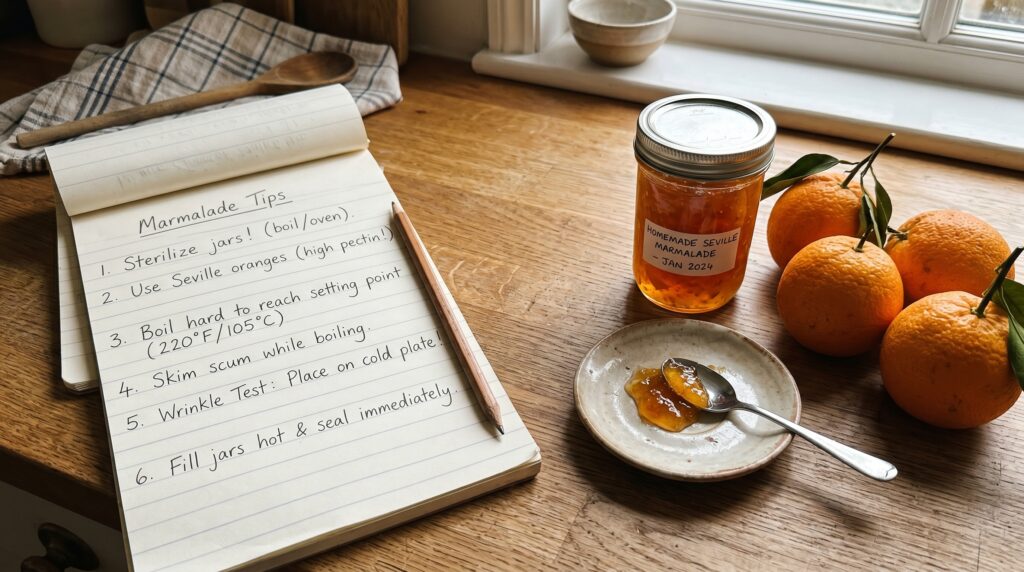 Marmalade Tips
1. Sterilize jars! (boil/oven).
2. Use Seville oranges (high pectin!)
3. Boil hard to reach setting point
(220°F/105°C)
4. Skim scum while boiling.
5. Wrinkle Test: Place on cold plate!
6. Fill jars hot & seal immediately.
HOMEMADE SEVILLE
MARMALADE
- JAN 2024